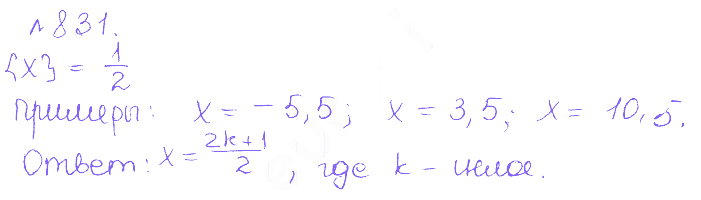 №831.
{x} = 1/2
Примеры: x = -5,5; x = 3,5; x = 10,5.
Ответ: x = (2k+1)/2, где k - целое.